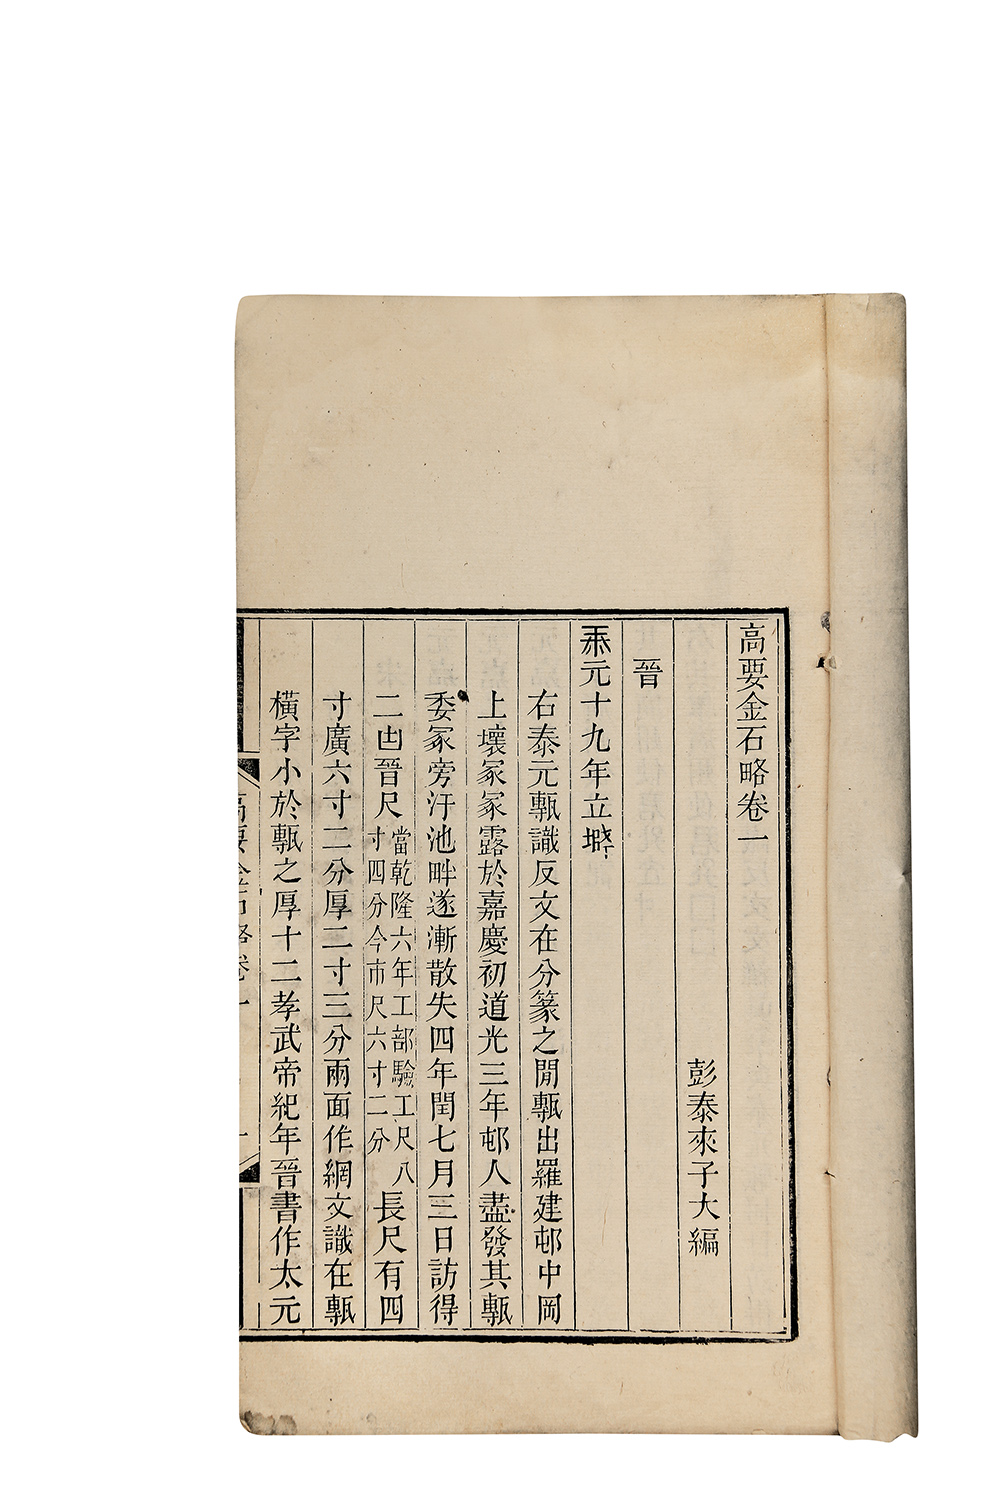 高要金石略卷一
彭泰來子大編
晉
元十九年立
右泰元甎識反文在分篆之閒甎出羅建邨中岡
上壞冢冢露於嘉慶初道光三年邨人盡發其甎
委冢旁汙池畔遂漸散失四年閏七月三日訪得
二凷晉尺當乾隆六年工部驗工尺八寸四分今市尺六寸二分長尺有四
寸廣六寸二分厚二寸三分兩面作網文識在甎
橫字小於甎之厚十二孝武帝紀年晉書作太元
高要金石略卷一
一